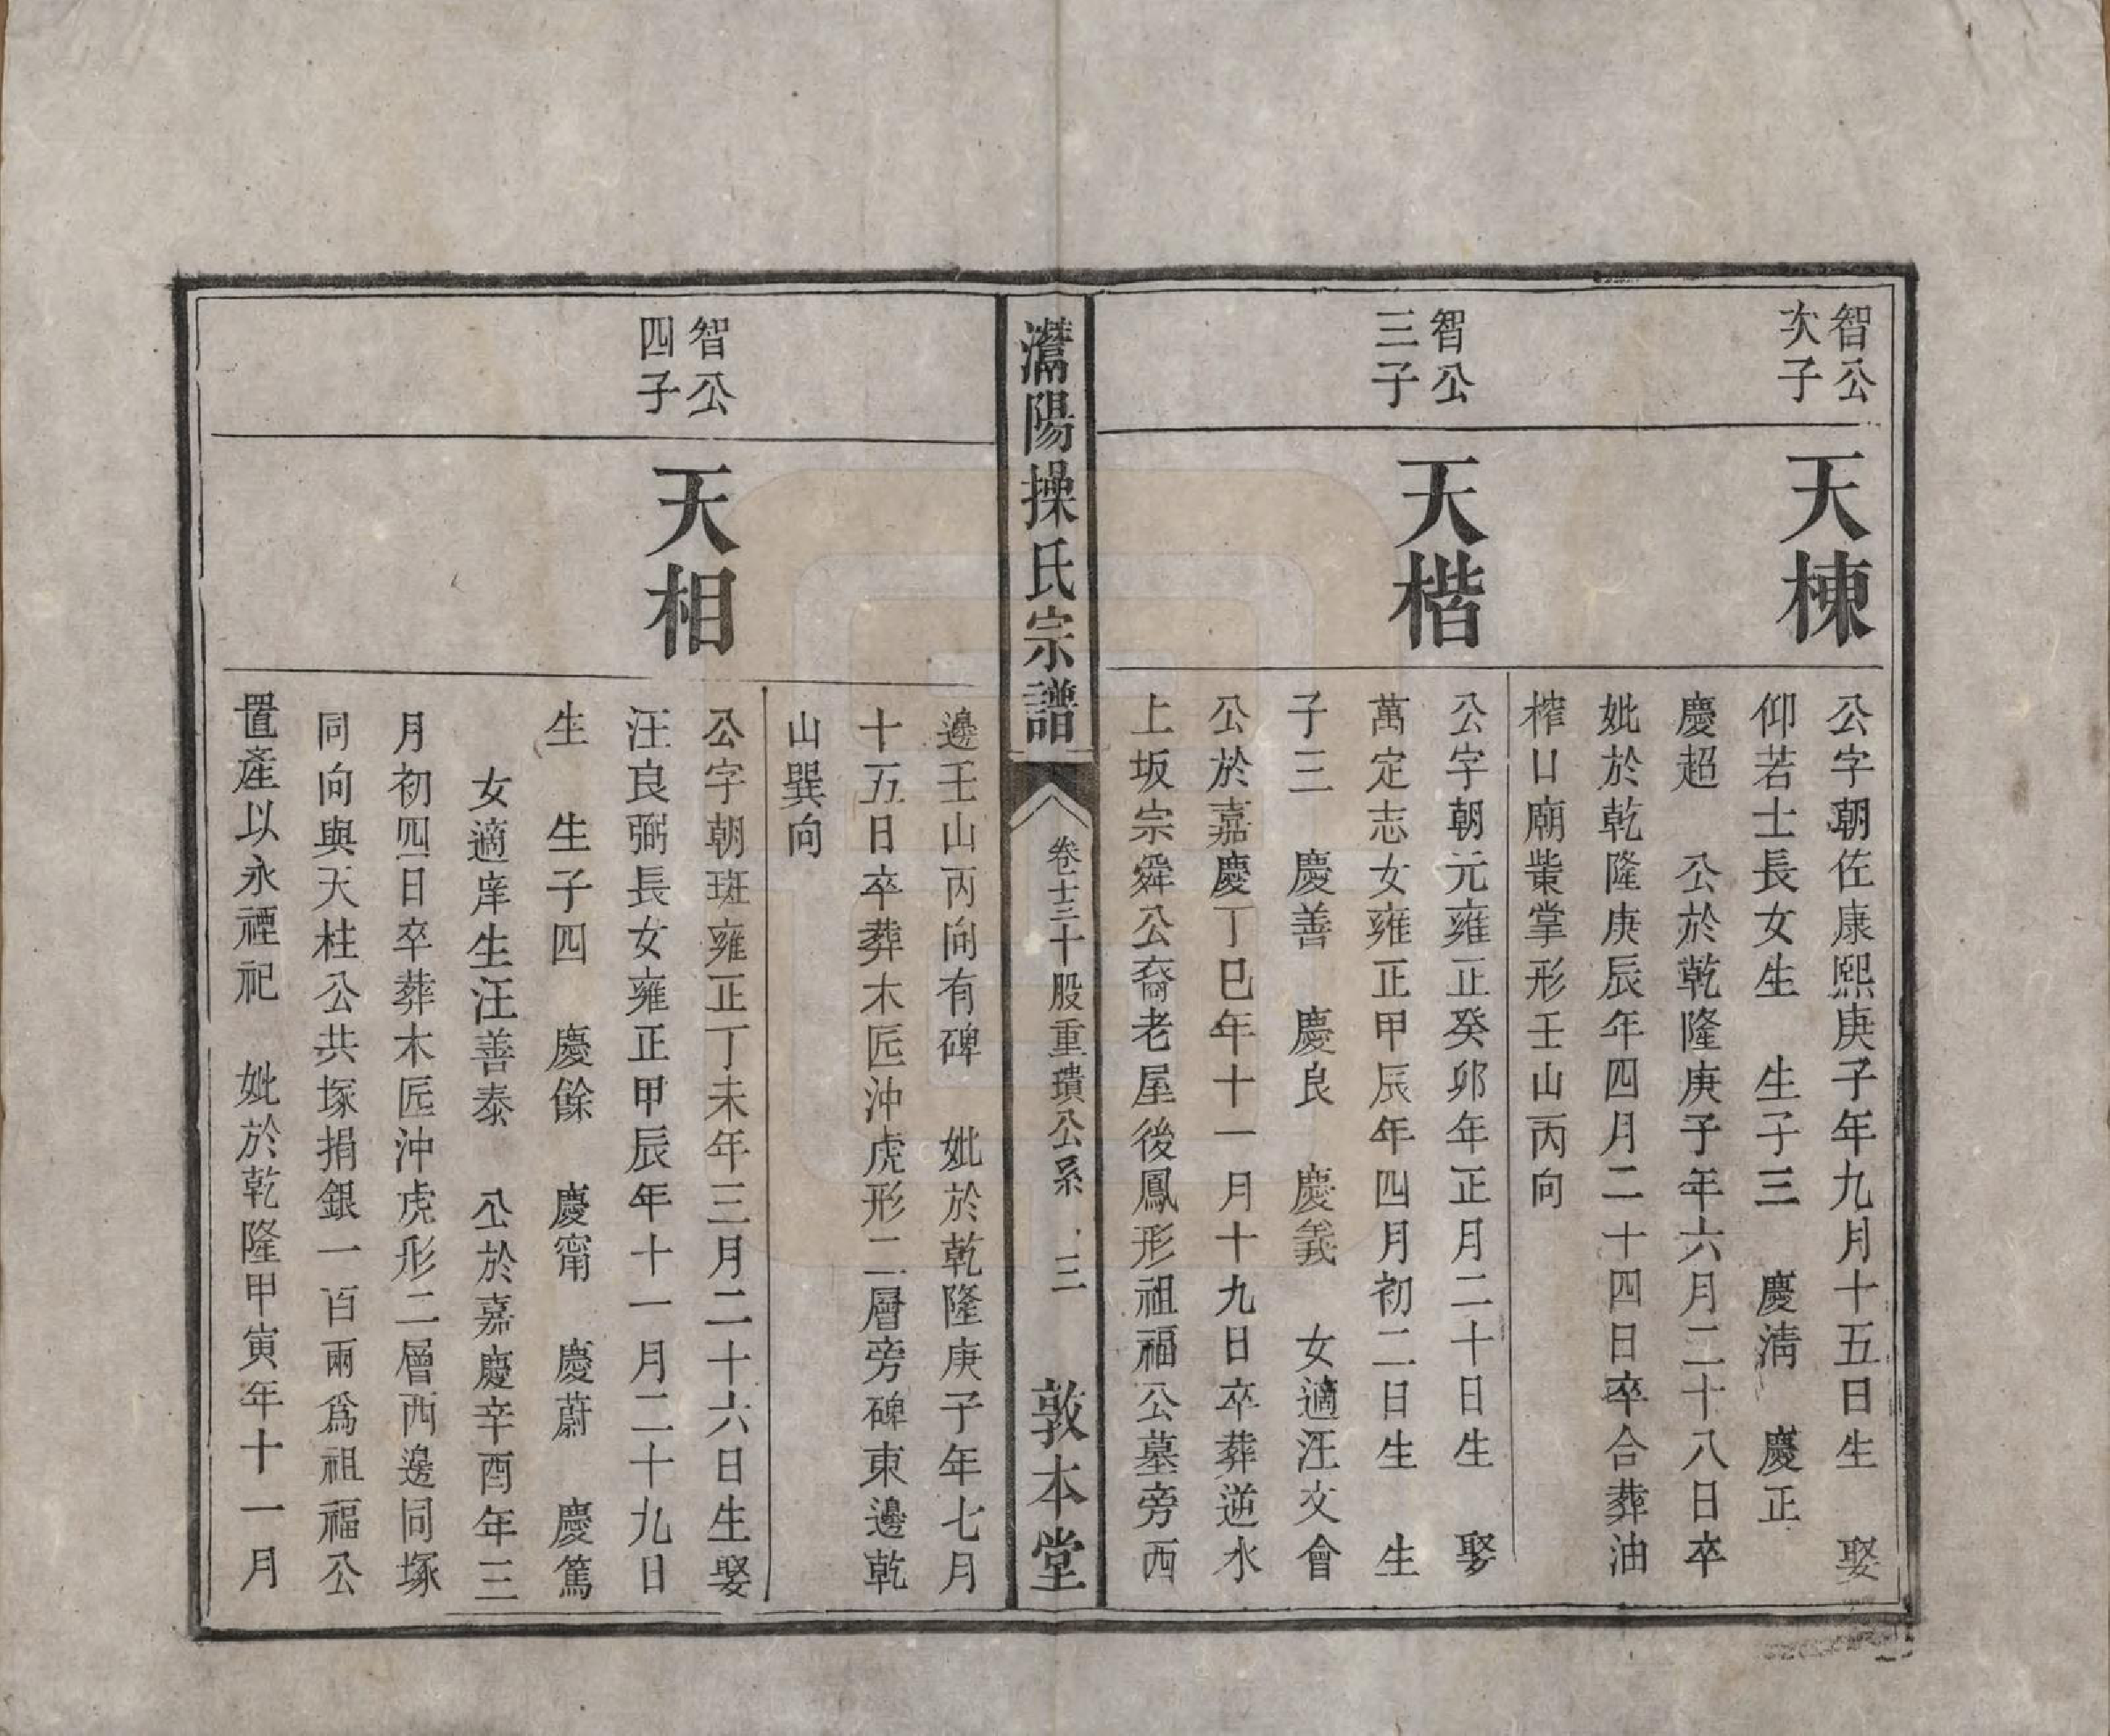 智公
次子
天棟
公字朝佐康熙庚子年九月十五日生　娶
仰若士長女生　生子三　慶淸　慶正
慶超　公於乾隆庚子年六月二十八日卒
妣於乾隆庚辰年四月二十四日卒合葬油
榨廟掌形壬山丙向
智公
三子
天楷
公字朝元雍正癸卯年正月二十日生　娶
萬定志女雍正甲辰年四月初二日生　生
子三　慶善　慶良　慶義　女適汪文會
公於嘉慶丁巳年十一月十九日卒葬逆水
上坂宗舜公裔老屋後鳳形祖福公墓旁西
灊陽操氏宗譜
卷十三　十股重璝公系　三
敦本堂
邊壬山丙向有碑　妣於乾隆庚子年七月
十五日卒葬木匠沖虎形二層旁碑東邊乾
山巽向
智公
四子
天相
公字朝班雍正丁未年三月二十六日生娶
汪良弼長女雍正甲辰年十一月二十九日
生　生子四　慶餘　慶甯　慶蔚　慶篤
女適庠生汪善泰　公於嘉慶辛酉年三
月初四日卒葬木匠沖虎形二層西邊同塚
同向與天柱公共塚捐銀一百兩爲祖福公
置產以永禋祀　妣於乾隆甲寅年十一月